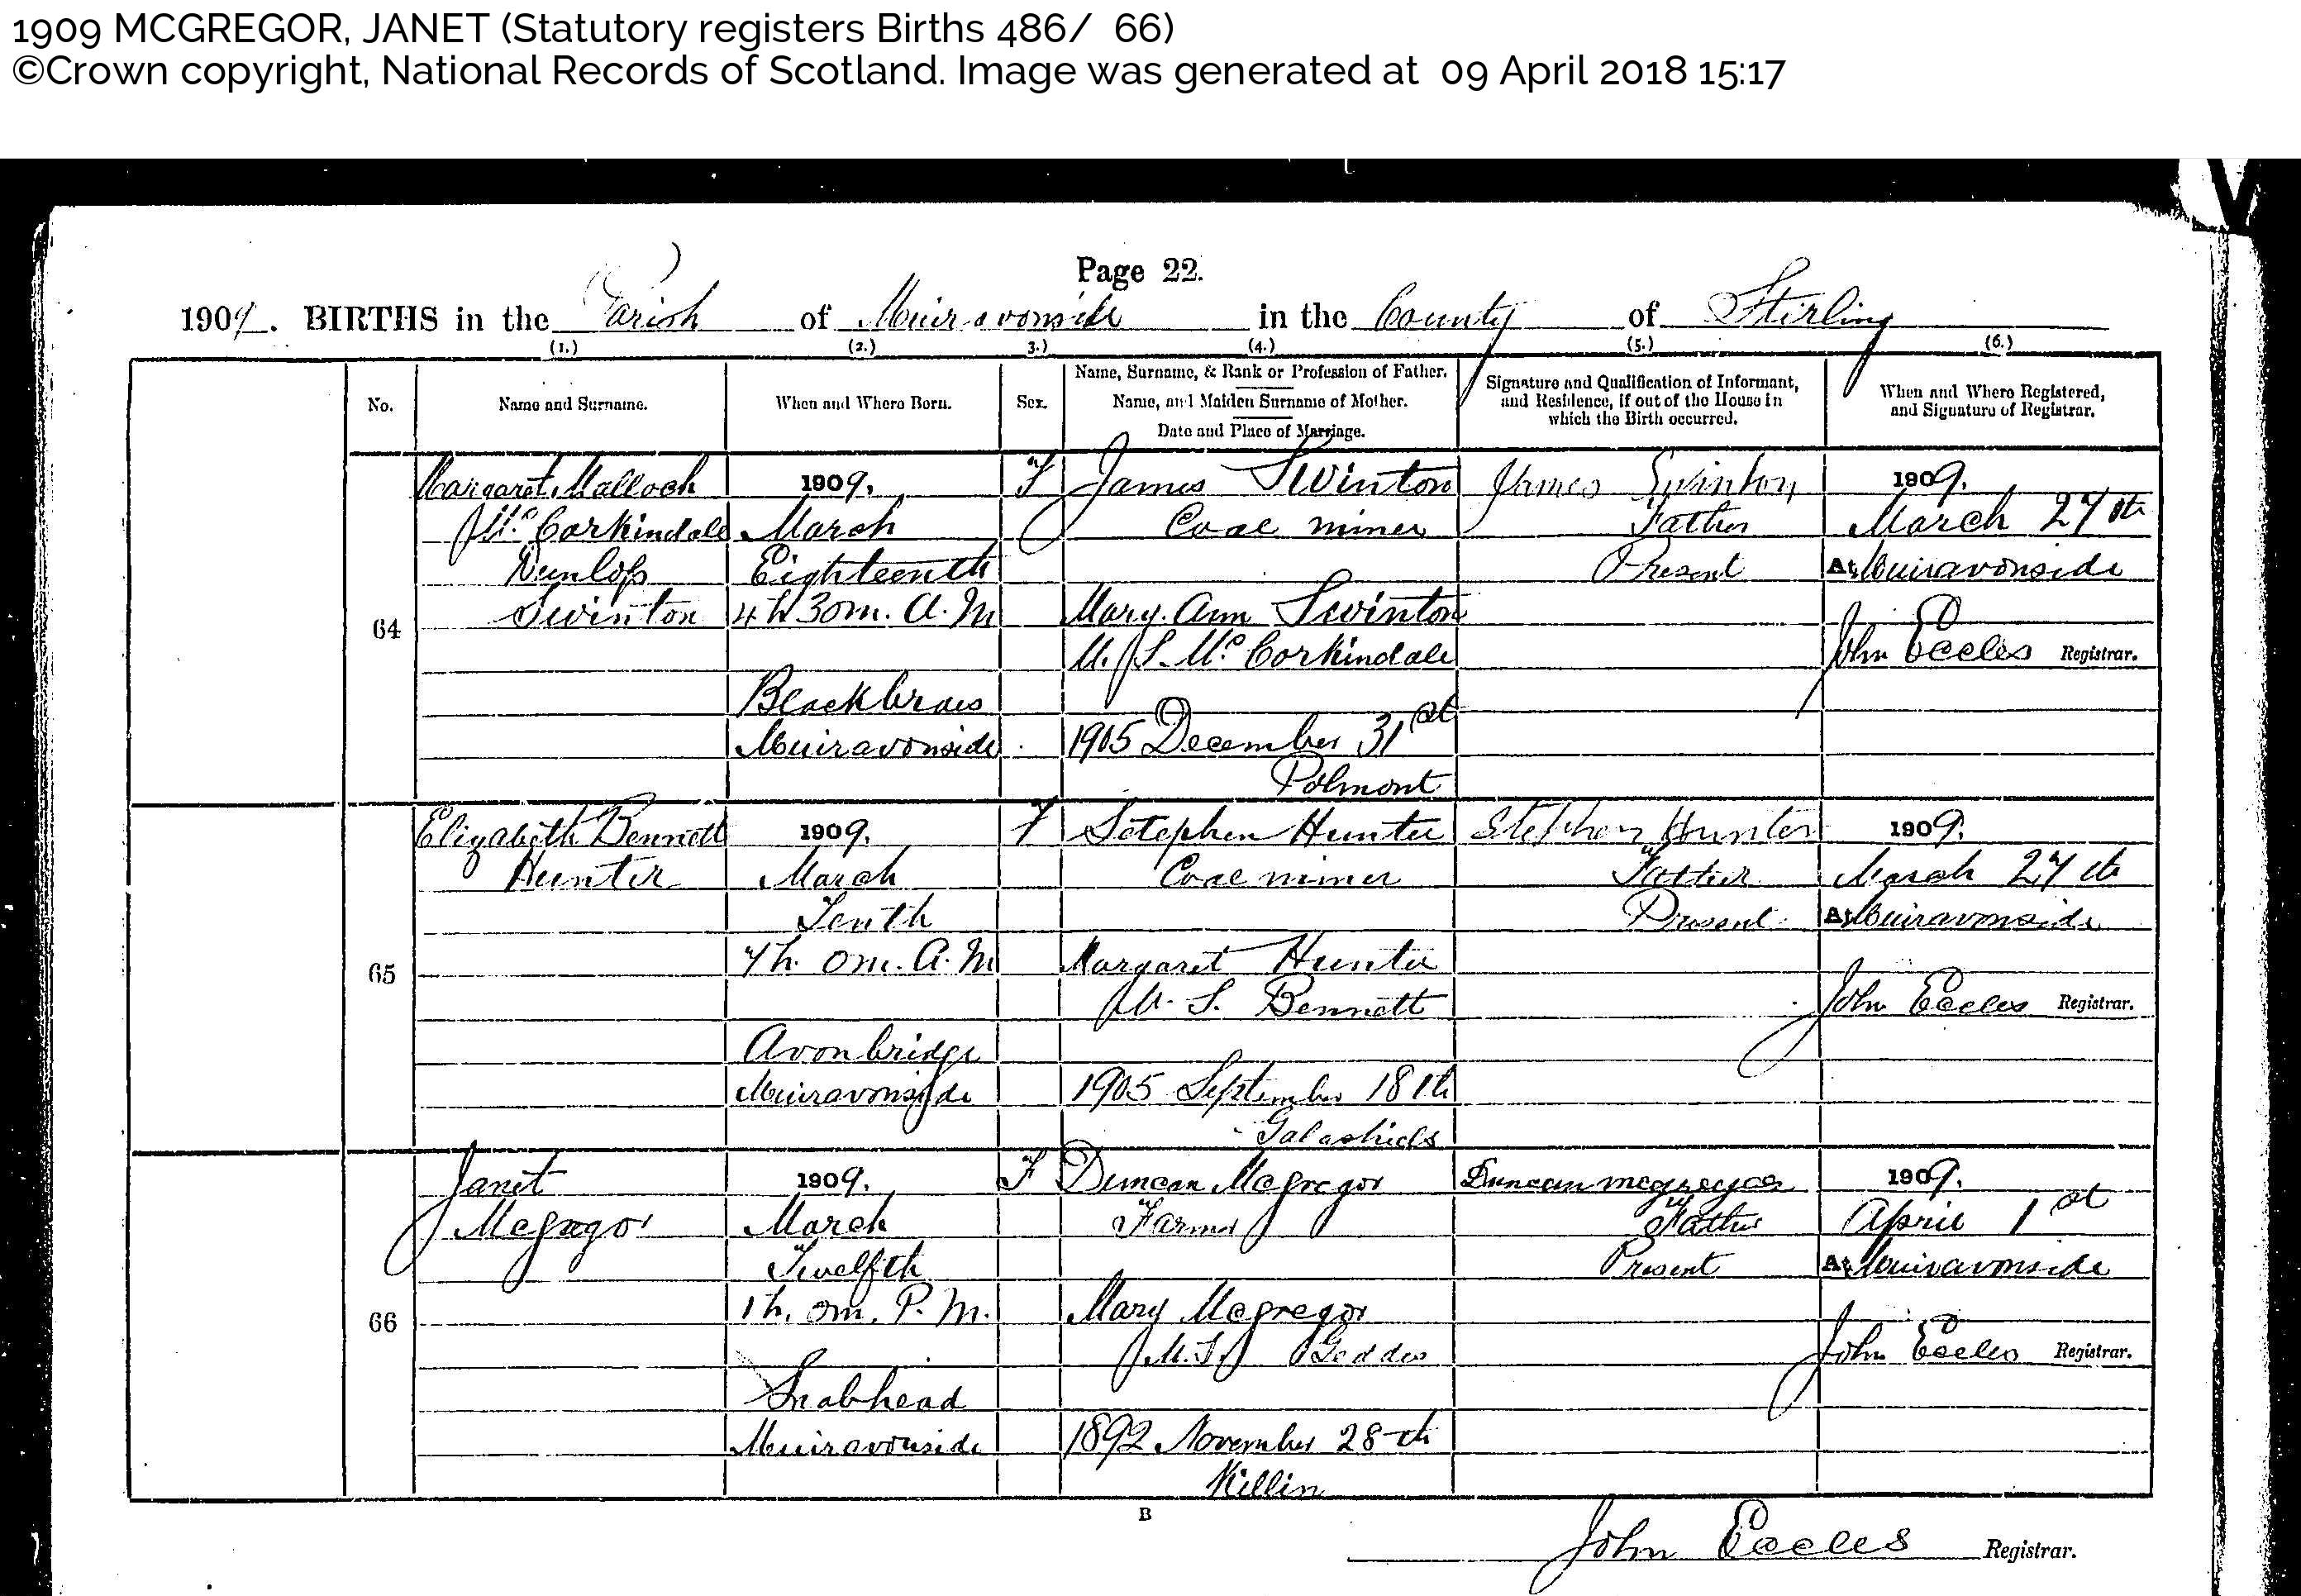 1909 MCGREGOR, JANET (Statutory registers Births 486/ 66)
©Crown copyright, National Records of Scotland. Image was generated at 09 April 2018 15:17
Page 22.
1909. BIRTHS in the Parish of Muiravonside in the County of Stirling
(1.) (2.) 3.) (4.) (5.) (6.)
No.
Name and Surname.
When and Where Born.
Sex.
Name, Surname, & Rank or Profession of Father.
Name, and Maiden Surname of Mother.
Date and Place of Marriage.
Signature and Qualification of Informant,
and Residence, if out of the House in
which the Birth occurred.
When and Where Registered,
and Signature of Registrar.
64
Margaret Malloch
McCorkindale
Dunlop
Swinton
1909.
March
Eighteenth
4h 30m. A.M
Blackbraes
Muiravonside
F
James Swinton
Coal miner
Mary Ann Swinton
M.S. McCorkindale
1905 December 31st
Polmont
James Swinton
Father
Present
1909.
March 27th
At Muiravonside
John Eccles Registrar.
65
Elizabeth Bennett
Hunter
1909.
March
Tenth
7h. 0m. A.M
Avonbridge
Muiravonside
F
Setephen Hunter
Coal miner
Margaret Hunter
M.S. Bennett
1905 September 18th
Galashiels
Stephen Hunter
Father
Present
1909.
March 27th
At Muiravonside
John Eccles Registrar.
66
Janet
McGregor
1909.
March
Twelfth
1h. 0m. P.M.
Snabhead
Muiravonside
F
Duncan McGregor
Farmer
Mary McGregor
M.S. Geddes
1892 November 28th
Killin
Duncan mcgregor
Father
Present
1909.
April 1st
At Muiravonside
John Eccles Registrar.
B
John Eccles Registrar.